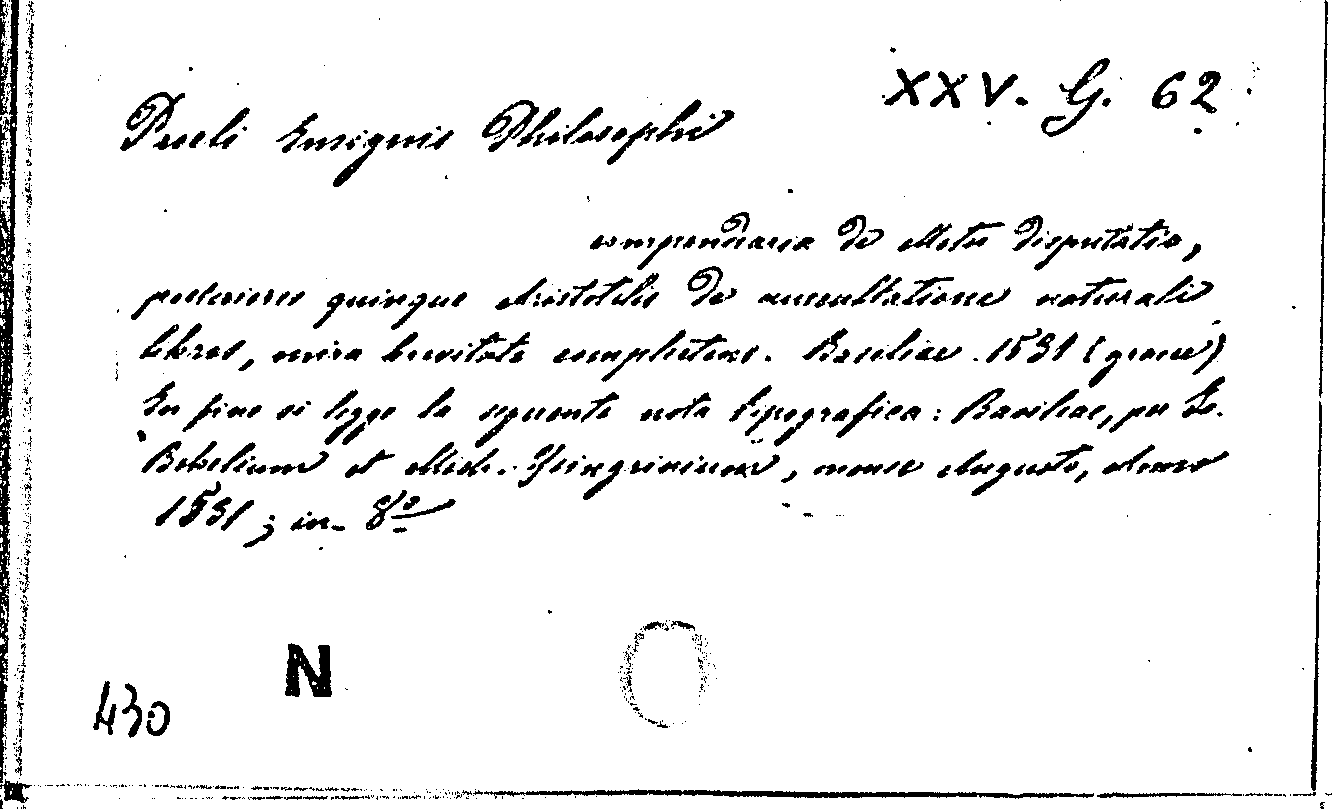 XXV. G. 62
Procli Insignis Philosophi
compendiaria de Motu disputatio,
posteriores quinque Aristotelis de auscultatione naturali
libros, mira brevitate complectens. Basileae 1531 (graece)
In fine si legge la seguente nota tipografica: Basileae, per Io.
Bebelium et Mich. Ysingrinium, mense Augusto, Anno
1531; in-8º
N
430